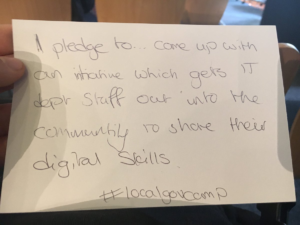 I pledge to... come up with
an initiative which gets IT
dept staff out into the
community to share their
digital skills.
#localgovcamp